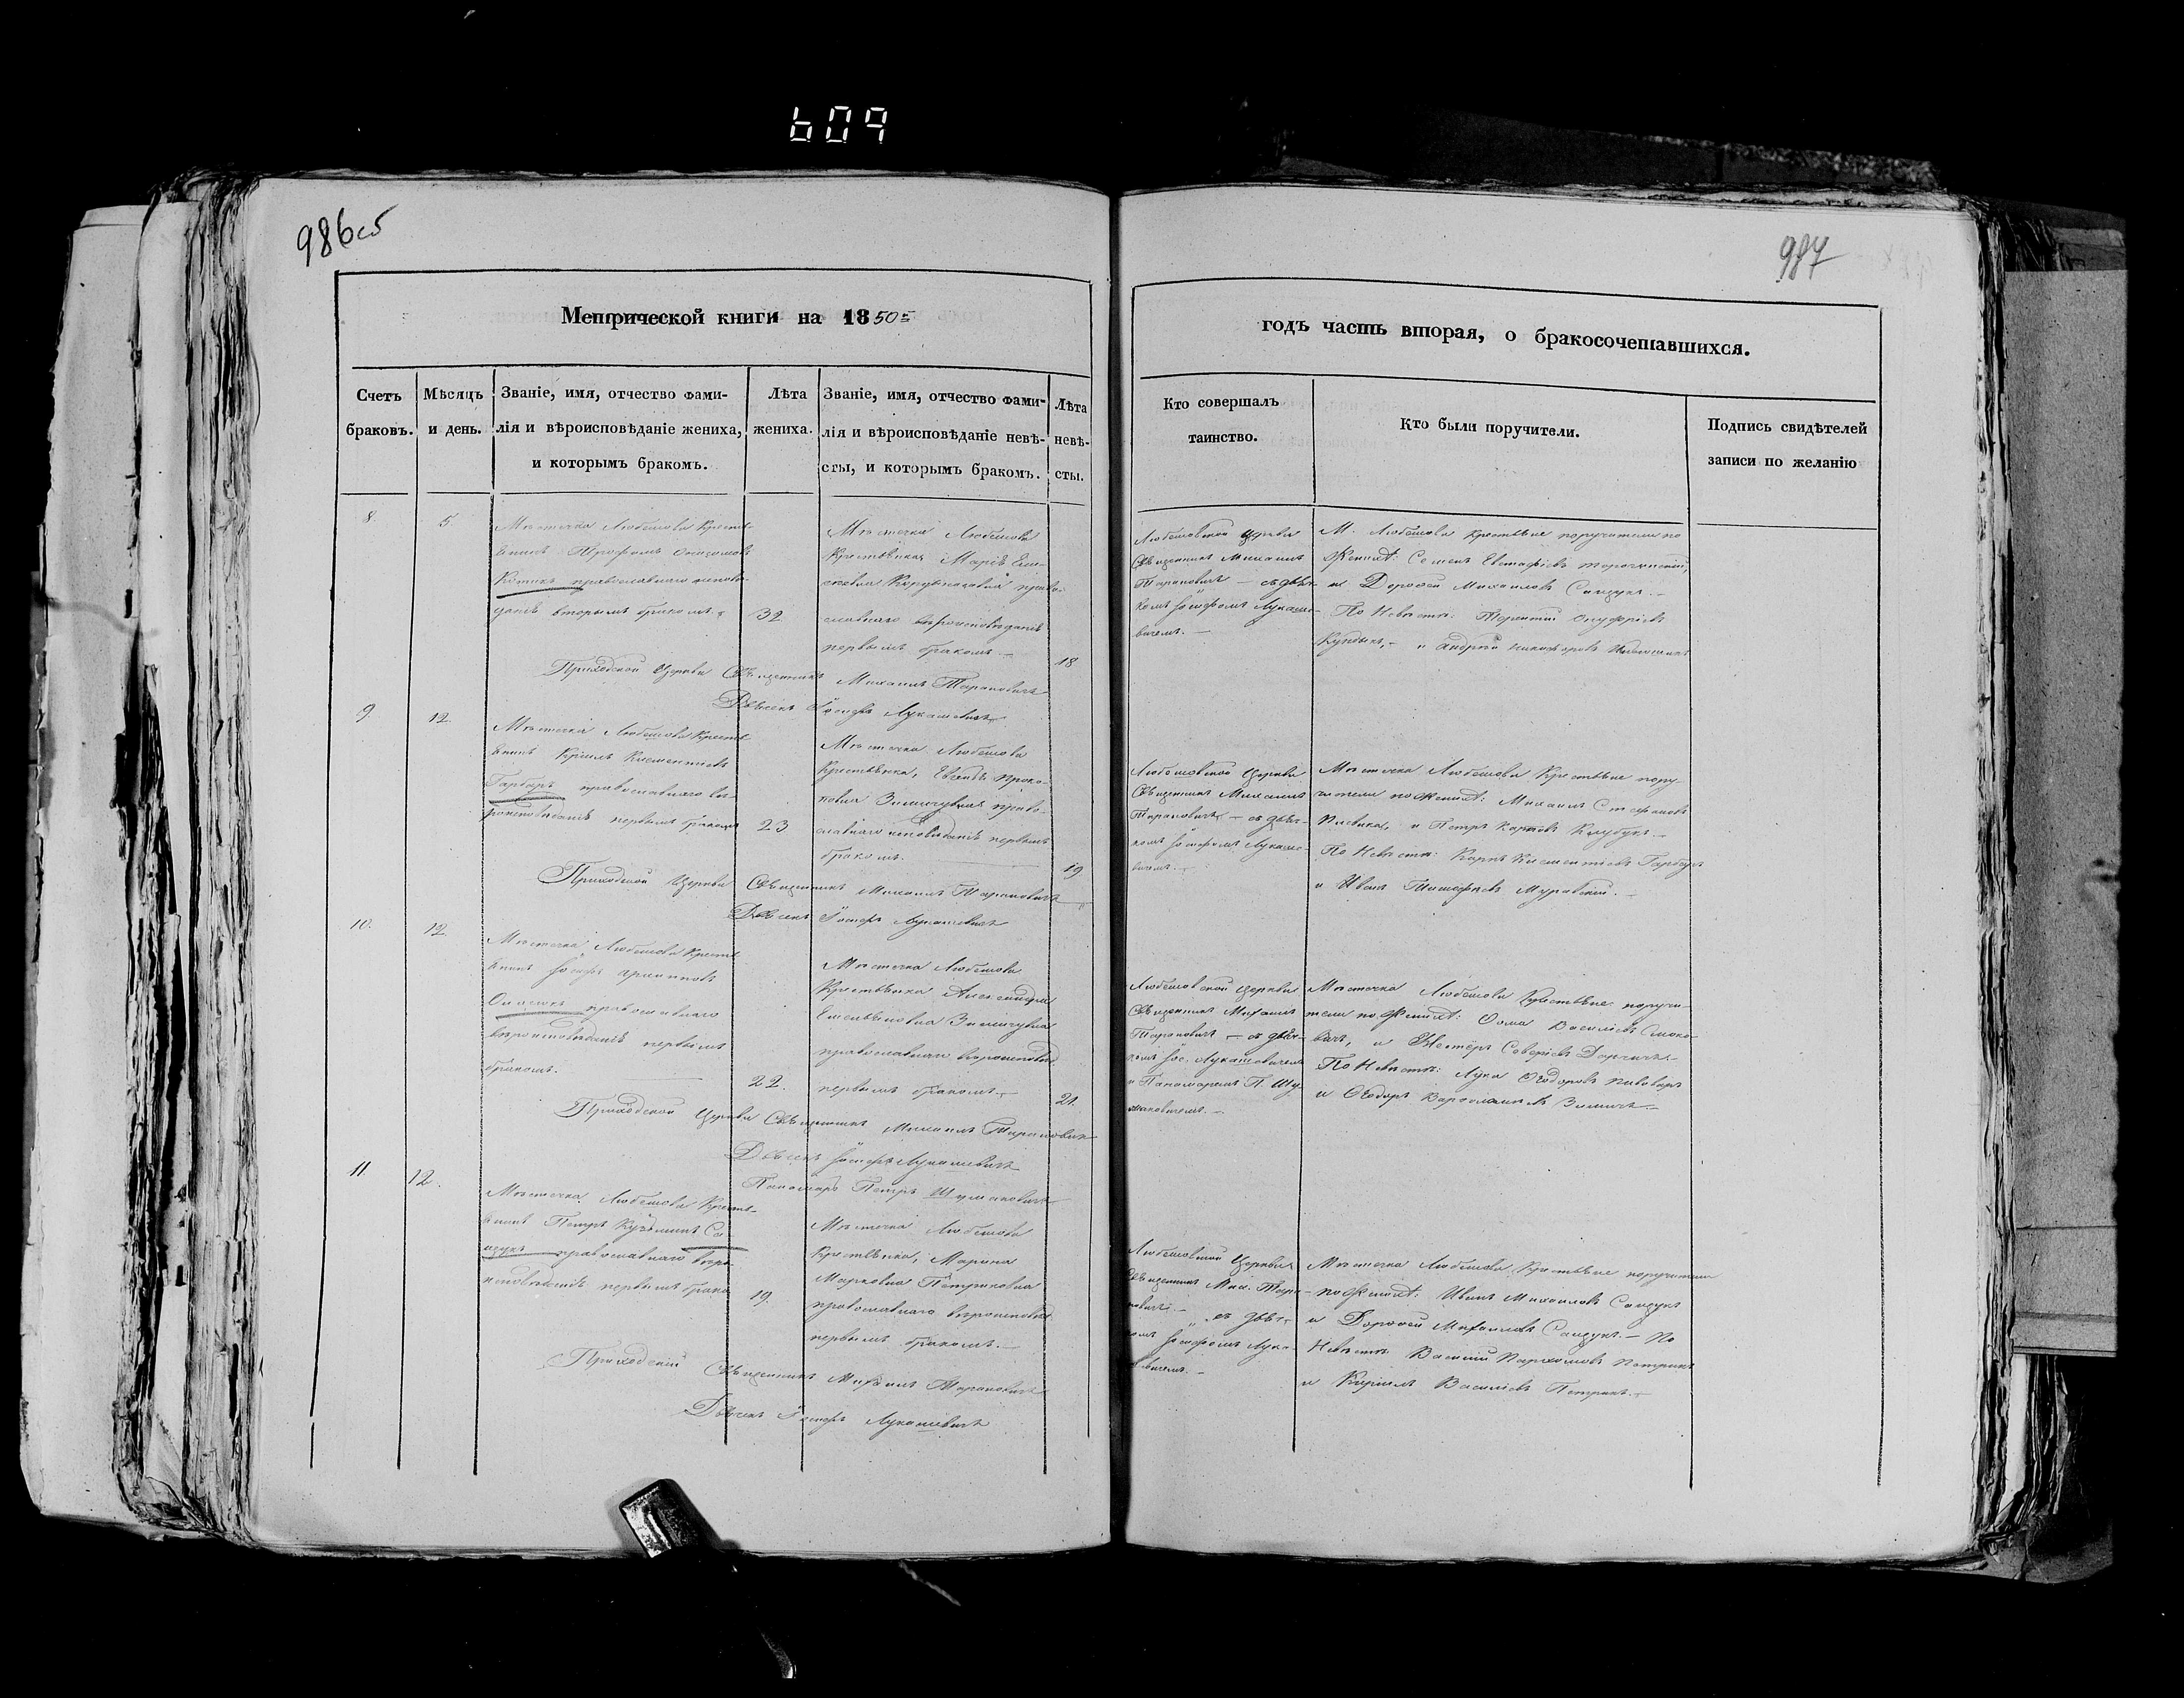 609
986об
987
Метрической книги на 1850й
годъ часть вторая, о бракосочетавшихся.
Счетъ браковъ.
Мѣсяцъ и день.
Званіе, имя, отчество фами-
лія и вѣроисповѣданіе жениха,
и которымъ бракомъ.
Лѣта
жениха.
Званіе, имя, отчество фами-
лія и вѣроисповѣданіе невѣ-
сты, и которымъ бракомъ.
Лѣта
невѣ-
сты.
Кто совершалъ
таинство.
Кто были поручители.
Подпись свидѣтелей
записи по желанію
8.
5
Мѣстечка Любешова крест-
янинъ Трофимъ
православнаго исповѣ-
данія вторымъ бракомъ.
32.
Мѣстечка Любешова
Крестьянка Марія
право-
славнаго вѣроисповѣданія
первымъ бракомъ.
18
Любешовской Церкви
Священникъ Михаилъ
Тарановичъ — съ дьяч-
комъ Іосифомъ Лукаше-
вичемъ.
М. Любешова крестьяне поручители по
Женихѣ: Семенъ Евстафіевъ
и Дорофей Михайловъ Сацукъ.
По Невѣстѣ: Терентій Онуфріевъ
и Андрей Никифоровъ
Приходской Церкви Священникъ Михаилъ Тарановичъ
Дьячекъ Іосифъ Лукашевичъ
9.
12.
Мѣстечка Любешова Крест-
янинъ Кирилъ Климентіевъ
Гарбаръ православнаго вѣ-
роисповѣданія первымъ бракомъ
23
Мѣстечка Любешова
Крестьянка, Проко-
повна право-
славнаго исповѣданія первымъ
бракомъ.
19
Любешовской Церкви
Священникъ Михаилъ
Тарановичъ — съ дьяч-
комъ Іосифомъ Лукаше-
вичемъ.
Мѣстечка Любешова Крестьяне пору-
чители по Женихѣ: Михаилъ Стефановъ
и Петръ Карповъ
По Невѣстѣ: Карпъ Климентіевъ Гарбаръ
и Иванъ Тимофѣевъ Муравскій.
Приходской Церкви Священникъ Михаилъ Тарановичъ
Дьячекъ Іосифъ Лукашевичъ
10.
12.
Мѣстечка Любешова Крест-
янинъ Іосифъ
православнаго
вѣроисповѣданія первымъ
бракомъ.
22.
Мѣстечка Любешова
Крестьянка Александра
Емельяновна
православнаго вѣроисповѣд.
первымъ бракомъ.
21.
Любешовской Церкви
Священникъ Михаилъ
Тарановичъ — съ дьяч-
комъ Іос. Лукашевичемъ
и Панамаремъ П. Шу-
мановичемъ.
Мѣстечка Любешова Крестьяне поручи-
тели по Женихѣ: Ѳома Василіевъ
и Несторъ
По Невѣстѣ: Лука Ѳеодоровъ Пивоваръ
и Ѳеодоръ Варѳоломеевъ Зимичъ.
Приходской Церкви Священникъ Михаилъ Тарановичъ
Дьячекъ Іосифъ Лукашевичъ
Панамарь Петръ Шумановичъ
11.
12.
Мѣстечка Любешова Кресть-
янинъ Петръ Кузьминъ Са-
цукъ православнаго вѣро-
исповѣданія первымъ брако
19.
Мѣстечка Любешова
Крестьянка, Марина
Марковна Петриковна
православнаго вѣроисповѣд.
первымъ бракомъ.
Любешовской Церкви
Священникъ Мих. Тара-
новичъ. —
съ дьяч-
комъ Іосифомъ Лука-
шевичемъ.
Мѣстечка Любешова Крестьяне поручители
по Женихѣ: Иванъ Михайловъ Сацукъ
и Дорофей Михайловъ Сацукъ. — По
Невѣстѣ Василій Пархомовъ Петрикъ
и Кирилъ Василіевъ Петрикъ.
Приходскій Священникъ Михаилъ Тарановичъ
Дьячекъ Іосифъ Лукашевичъ